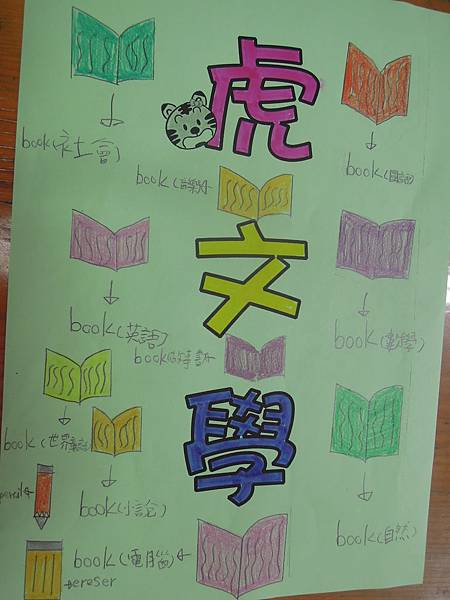 虎
文
學
book(社會)
book(國語)
book
book(英語)
book(數學)
book
book(世界
book(小說)
book(自然)
pencil
book(電腦)
ereser